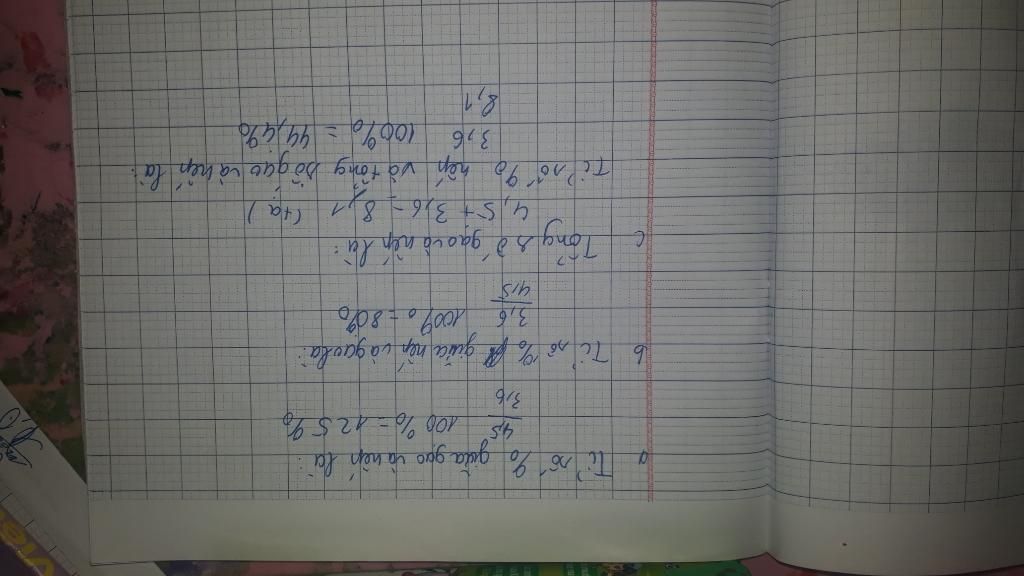 a Tỉ số % giữa gạo và nếp là:
4,5 100% = 125%
3,6
b Tỉ số % giữa nếp và gạo là:
3,6 100% = 80%
4,5
c Tổng số gạo và nếp là:
4,5 + 3,6 = 8,1 (tạ)
Tỉ số % nếp và tổng số gạo và nếp là:
3,6 100% = 44,4%
8,1